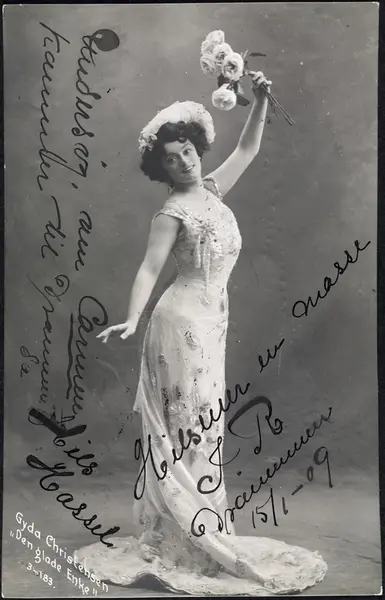 Undersøg, om Carmen
kommer til Drammen
Hils
Hassel
Hilsner en masse
Drammen
15/1-09
Gyda Christensen
"Den glade Enke"
3-183.